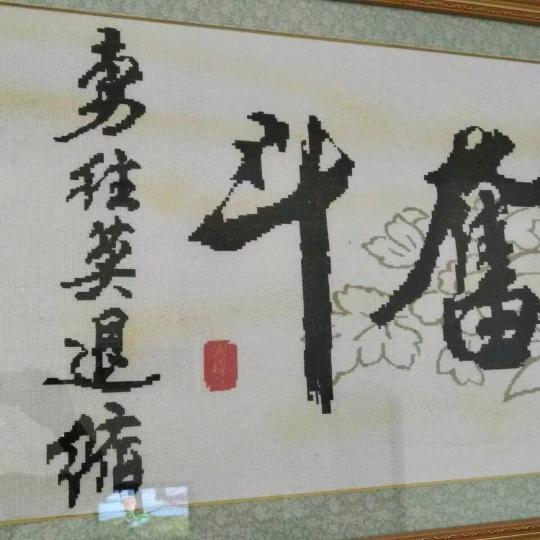 奮斗
勇往莫退缩